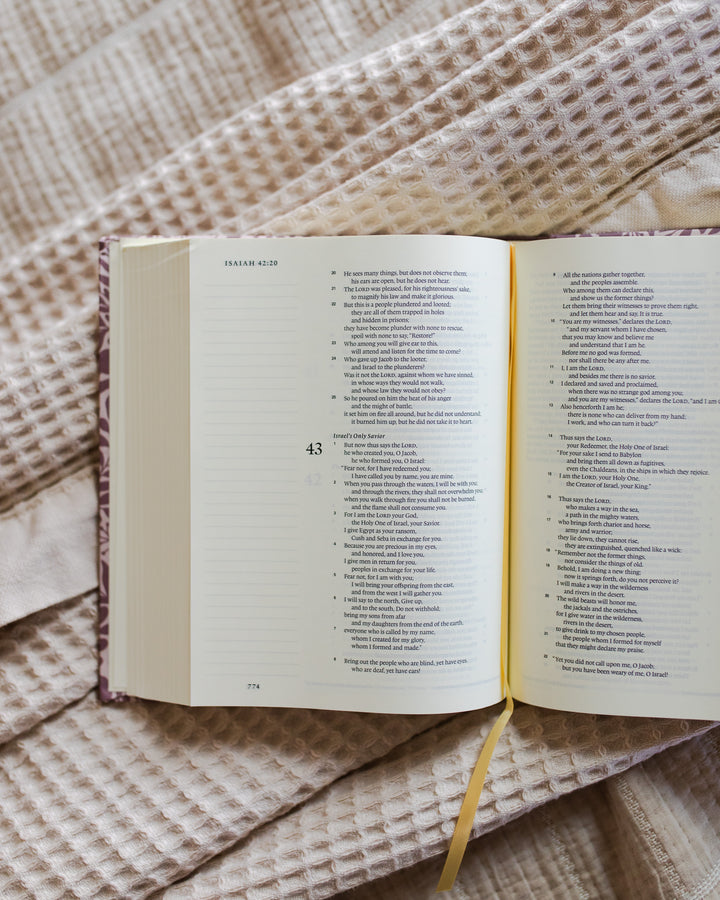 ISAIAH 42:20
20 He sees many things, but does not observe them;
his ears are open, but he does not hear.
21 The LORD was pleased, for his righteousness' sake,
to magnify his law and make it glorious.
22 But this is a people plundered and looted;
they are all of them trapped in holes
and hidden in prisons;
they have become plunder with none to rescue,
spoil with none to say, "Restore!"
23 Who among you will give ear to this,
will attend and listen for the time to come?
24 Who gave up Jacob to the looter,
and Israel to the plunderers?
Was it not the LORD, against whom we have sinned,
in whose ways they would not walk,
and whose law they would not obey?
25 So he poured on him the heat of his anger
and the might of battle;
it set him on fire all around, but he did not understand;
it burned him up, but he did not take it to heart.
Israel's Only Savior
43
1 But now thus says the LORD,
he who created you, O Jacob,
he who formed you, O Israel:
"Fear not, for I have redeemed you;
I have called you by name, you are mine.
2 When you pass through the waters, I will be with you;
and through the rivers, they shall not overwhelm you;
when you walk through fire you shall not be burned,
and the flame shall not consume you.
3 For I am the LORD your God,
the Holy One of Israel, your Savior.
I give Egypt as your ransom,
Cush and Seba in exchange for you.
4 Because you are precious in my eyes,
and honored, and I love you,
I give men in return for you,
peoples in exchange for your life.
5 Fear not, for I am with you;
I will bring your offspring from the east,
and from the west I will gather you.
6 I will say to the north, Give up,
and to the south, Do not withhold;
bring my sons from afar
and my daughters from the end of the earth,
7 everyone who is called by my name,
whom I created for my glory,
whom I formed and made."
8 Bring out the people who are blind, yet have eyes,
who are deaf, yet have ears!
774
9 All the nations gather together,
and the peoples assemble.
Who among them can declare this,
and show us the former things?
Let them bring their witnesses to prove them right,
and let them hear and say, It is true.
10 "You are my witnesses," declares the LORD,
"and my servant whom I have chosen,
that you may know and believe me
and understand that I am he.
Before me no god was formed,
nor shall there be any after me.
11 I, I am the LORD,
and besides me there is no savior.
12 I declared and saved and proclaimed,
when there was no strange god among you;
and you are my witnesses," declares the LORD, "and I am G
13 Also henceforth I am he;
there is none who can deliver from my hand;
I work, and who can turn it back?"
14 Thus says the LORD,
your Redeemer, the Holy One of Israel:
"For your sake I send to Babylon
and bring them all down as fugitives,
even the Chaldeans, in the ships in which they rejoice.
15 I am the LORD, your Holy One,
the Creator of Israel, your King."
16 Thus says the LORD,
who makes a way in the sea,
a path in the mighty waters,
17 who brings forth chariot and horse,
army and warrior;
they lie down, they cannot rise,
they are extinguished, quenched like a wick:
18 "Remember not the former things,
nor consider the things of old.
19 Behold, I am doing a new thing;
now it springs forth, do you not perceive it?
I will make a way in the wilderness
and rivers in the desert.
20 The wild beasts will honor me,
the jackals and the ostriches,
for I give water in the wilderness,
rivers in the desert,
to give drink to my chosen people,
21 the people whom I formed for myself
that they might declare my praise.
22 "Yet you did not call upon me, O Jacob;
but you have been weary of me, O Israel!